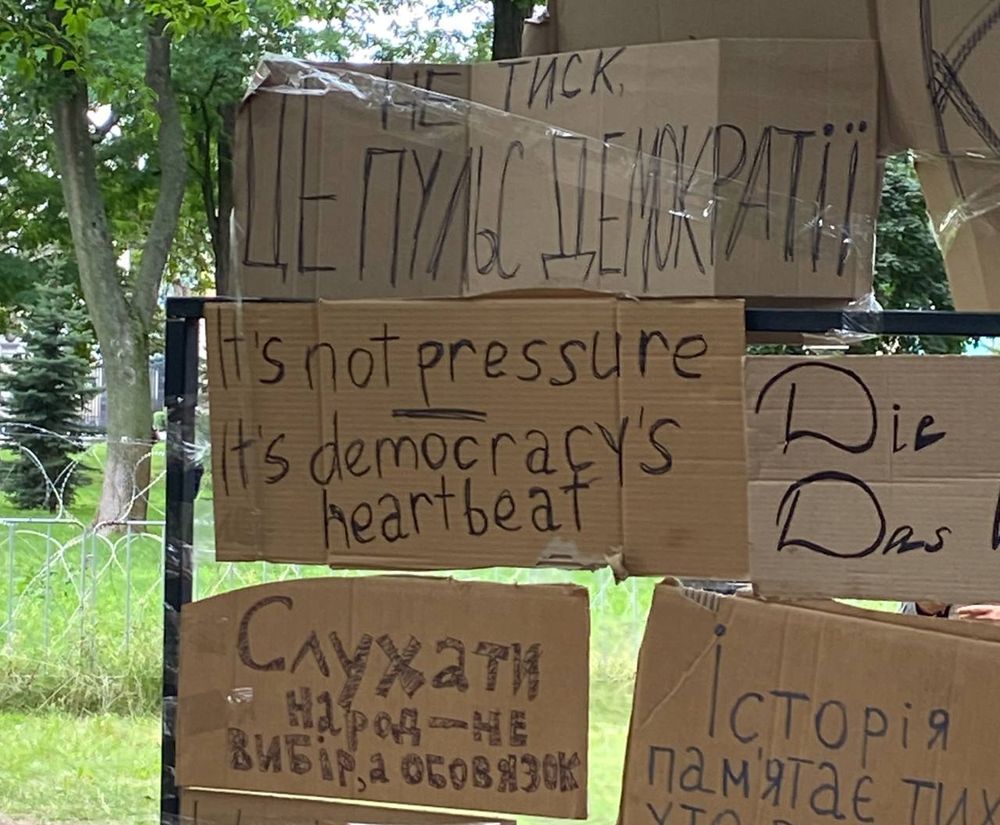 НЕ ТИСК,
ЦЕ ПУЛЬС ДЕМОКРАТІЇ
It's not pressure
It's democracy's
heartbeat
Die
Das
Слухати
народ — не
вибір, а обов'язок
Історія
пам'ятає тих
хто